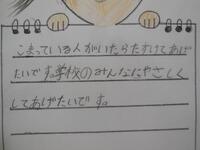 こまっている人がいたらたすけてあげ
たいです。学校のみんなにやさしく
してあげたいです。